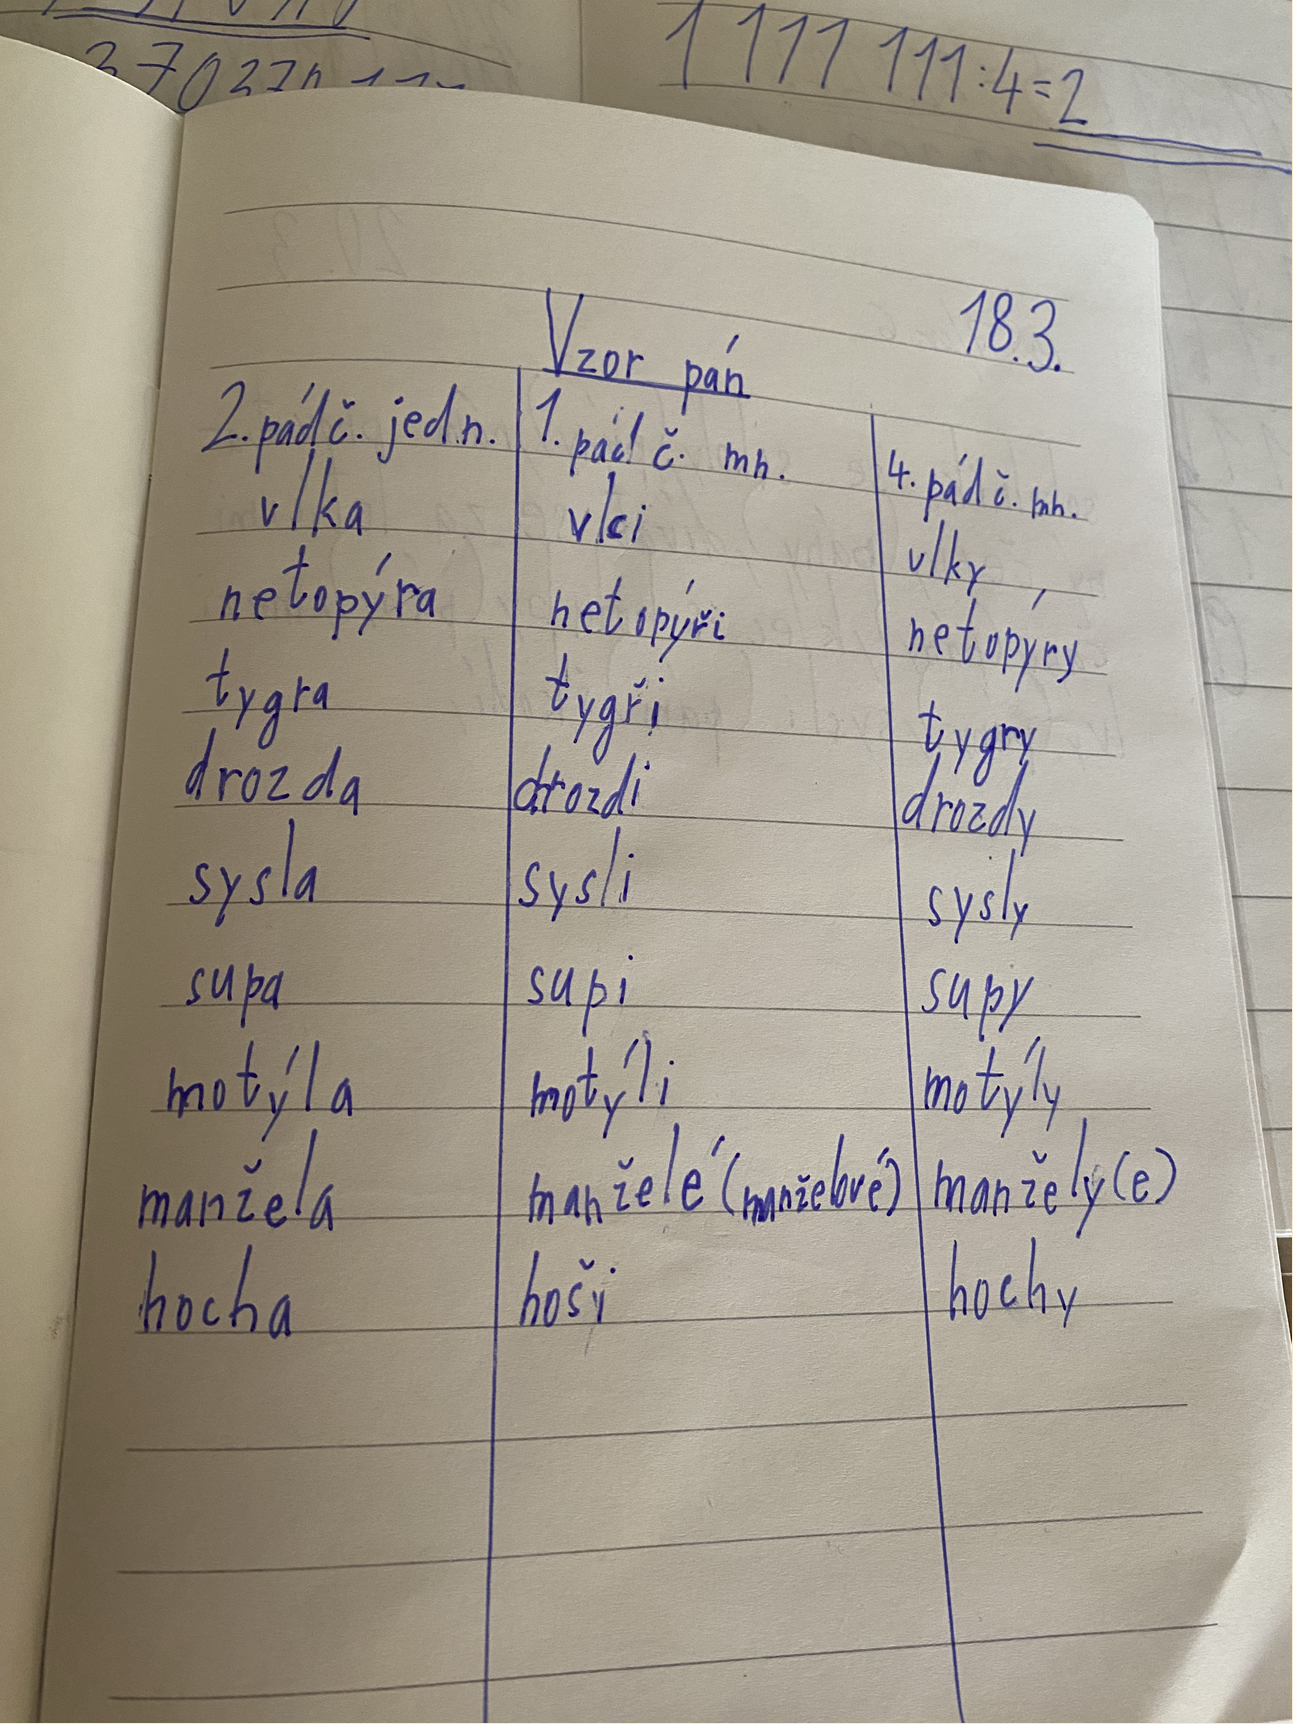 370370
1 111 111:4=2
18.3.
Vzor pán
2. pád č. jedn. 1. pád č. mn. 4. pád č. mn.
vlka vlci vlky
netopýra netopýři netopýry
tygra tygři tygry
drozda drozdi drozdy
sysla sysli sysly
supa supi supy
motýla motýli motýly
manžela manželé (manželové) manžely (e)
hocha hoši hochy